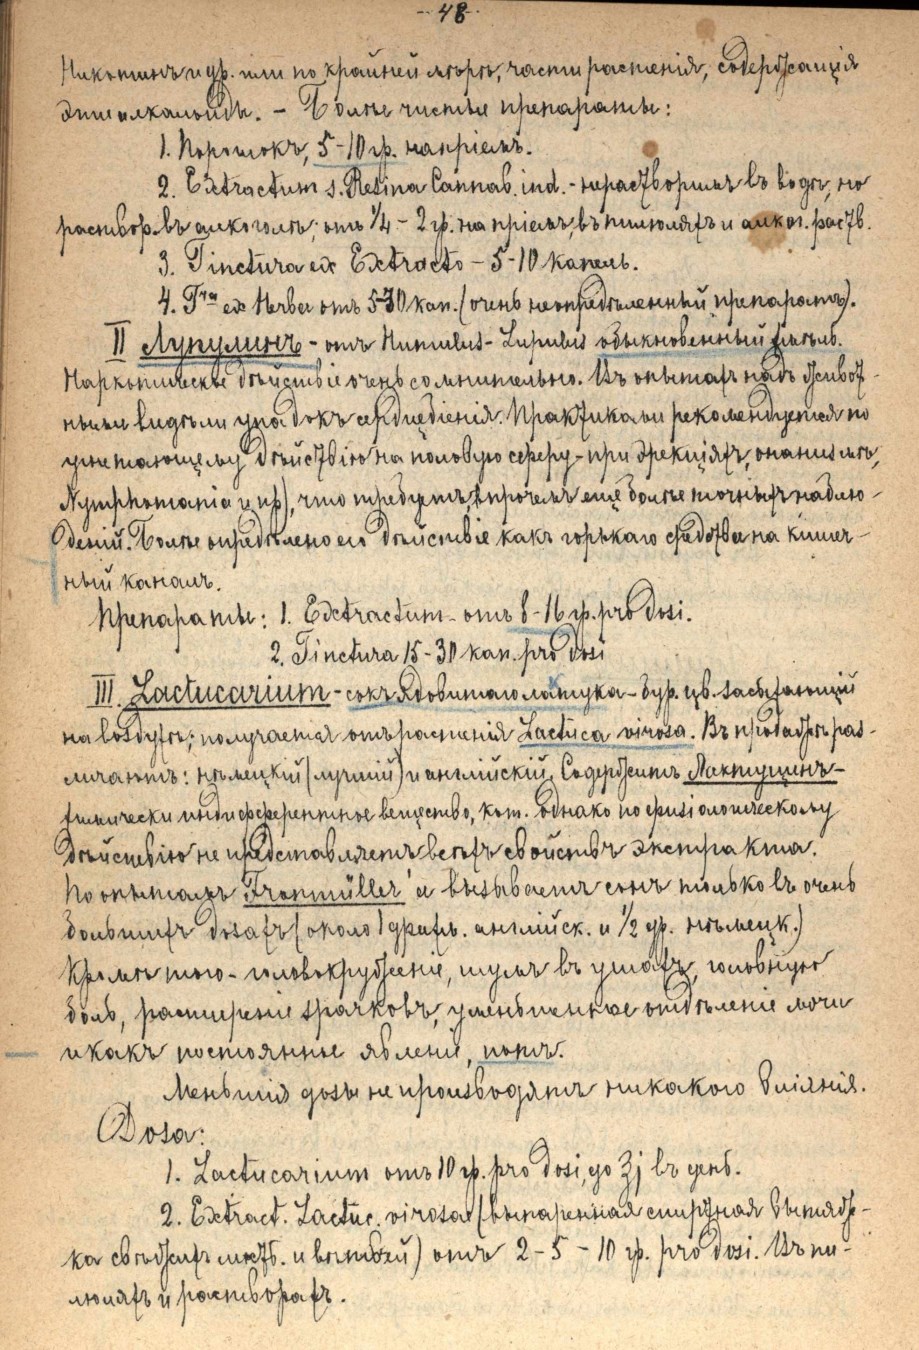 - 48 -
Никотинъ и др. или по крайней мѣрѣ, части растенія, содержащія
эти алкалоиды. - Болѣе чистые препараты:
1. Порошокъ, 5-10 гр. на пріемъ.
2. Extractum s. Resina Cannab. ind. - нерастворимъ въ водѣ, но
раствор. въ алкоголѣ; отъ 1/4 - 2 гр. на пріемъ, въ пилюляхъ и алког. раств.
3. Tinctura ex Extracto - 5-10 капель.
4. T-ra ex Herba отъ 5-30 кап. (очень неопредѣленный препаратъ).
II Лупулинъ - отъ Humulus - Lupulus обыкновенный хмѣль.
Наркотическое дѣйствіе очень сомнительно. Въ опытахъ надъ живот-
ными видѣли упадокъ сердцебіенія. Практиками рекомендуется по
угнетающему дѣйствію на половую сферу - при эрекціяхъ, онанизмѣ,
Nymphomania и пр), что требуетъ, впрочемъ ещё болѣе точныхъ наблю-
деній. Болѣе опредѣлено его дѣйствіе какъ горькаго средства на кишеч-
ный каналъ.
Препараты: 1. Extractum - отъ 8-16 гр. pro dosi.
2. Tinctura 15-30 кап. pro dosi
III. Lactucarium - сокъ ядовитаго латука - бур. цв. засыхающій
на воздухѣ; получается отъ растенія Lactuca virosa. Въ продажѣ раз-
личаютъ: нѣмецкій (лучшій) и англійскій. Содержитъ Лактуцинъ -
химически индифферентное вещество, кот. однако по физіологическому
дѣйствію не представляетъ всѣхъ свойствъ экстракта.
По опытамъ Fronmüller'а вызываетъ сонъ только въ очень
большихъ дозахъ (около 1 драхм. англійск. и 1/2 др. нѣмецк.)
Кромѣ того - головокруженіе, шумъ въ ушахъ, головную
боль, расширеніе зрачковъ, уменьшенное отдѣленіе мочи
и какъ постоянное явленіе, потъ.
Меньшія дозы не производятъ никакого вліянія.
Dosa:
1. Lactucarium отъ 10 гр. pro dosi, до ʒj въ день.
2. Extract. Lactuc. virosae (выпаренная спиртная вытяж-
ка свѣжихъ листь. и вѣтвей) отъ 2 - 5 - 10 гр. pro dosi. Въ пи-
люляхъ и растворахъ.